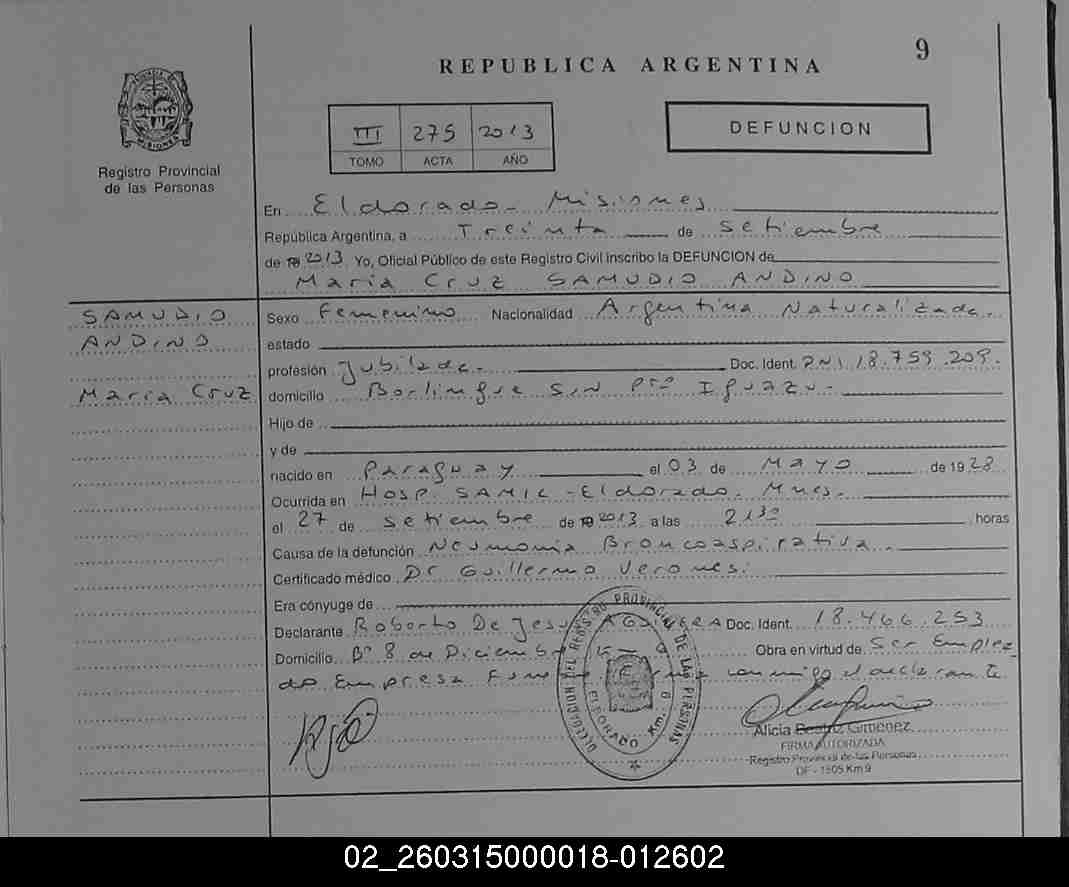 9
REPUBLICA ARGENTINA
PROVINCIA DE MISIONES
Registro Provincial
de las Personas
III 275 2013
TOMO ACTA AÑO
DEFUNCION
En Eldorado - Misiones
República Argentina, a Treinta de Setiembre
de 2013 Yo, Oficial Público de este Registro Civil inscribo la DEFUNCION de
Maria Cruz SAMUDIO ANDINO
SAMUDIO
ANDINO
Maria Cruz
Sexo Femenino Nacionalidad Argentina Naturalizada.
estado
profesión Jubilada. Doc. Ident. DNI 18.759.209.
domicilio S/N Pto Iguazu.
Hijo de
y de
nacido en Paraguay el 03 de Mayo de 1928
Ocurrida en Hosp. SAMIC - Eldorado. Mnes.
el 27 de Setiembre de 2013 a las 21 30 horas
Causa de la defunción Neumonia Broncoaspirativa.
Certificado médico Dr Guillermo Verones.
Era cónyuge de
Declarante Roberto De Jesus Doc. Ident. 18.466.253
Domicilio Bº 8 de Diciembre Obra en virtud de Ser Emplea
do Empresa conmigo el declarante
DELEGACION DEL REGISTRO PROVINCIAL DE LAS PERSONAS
ELDORADO Km. 9
Alicia Beatriz Gimenez
FIRMA AUTORIZADA
Registro Provincial de las Personas
DF - 1505 Km 9
02_260315000018-012602